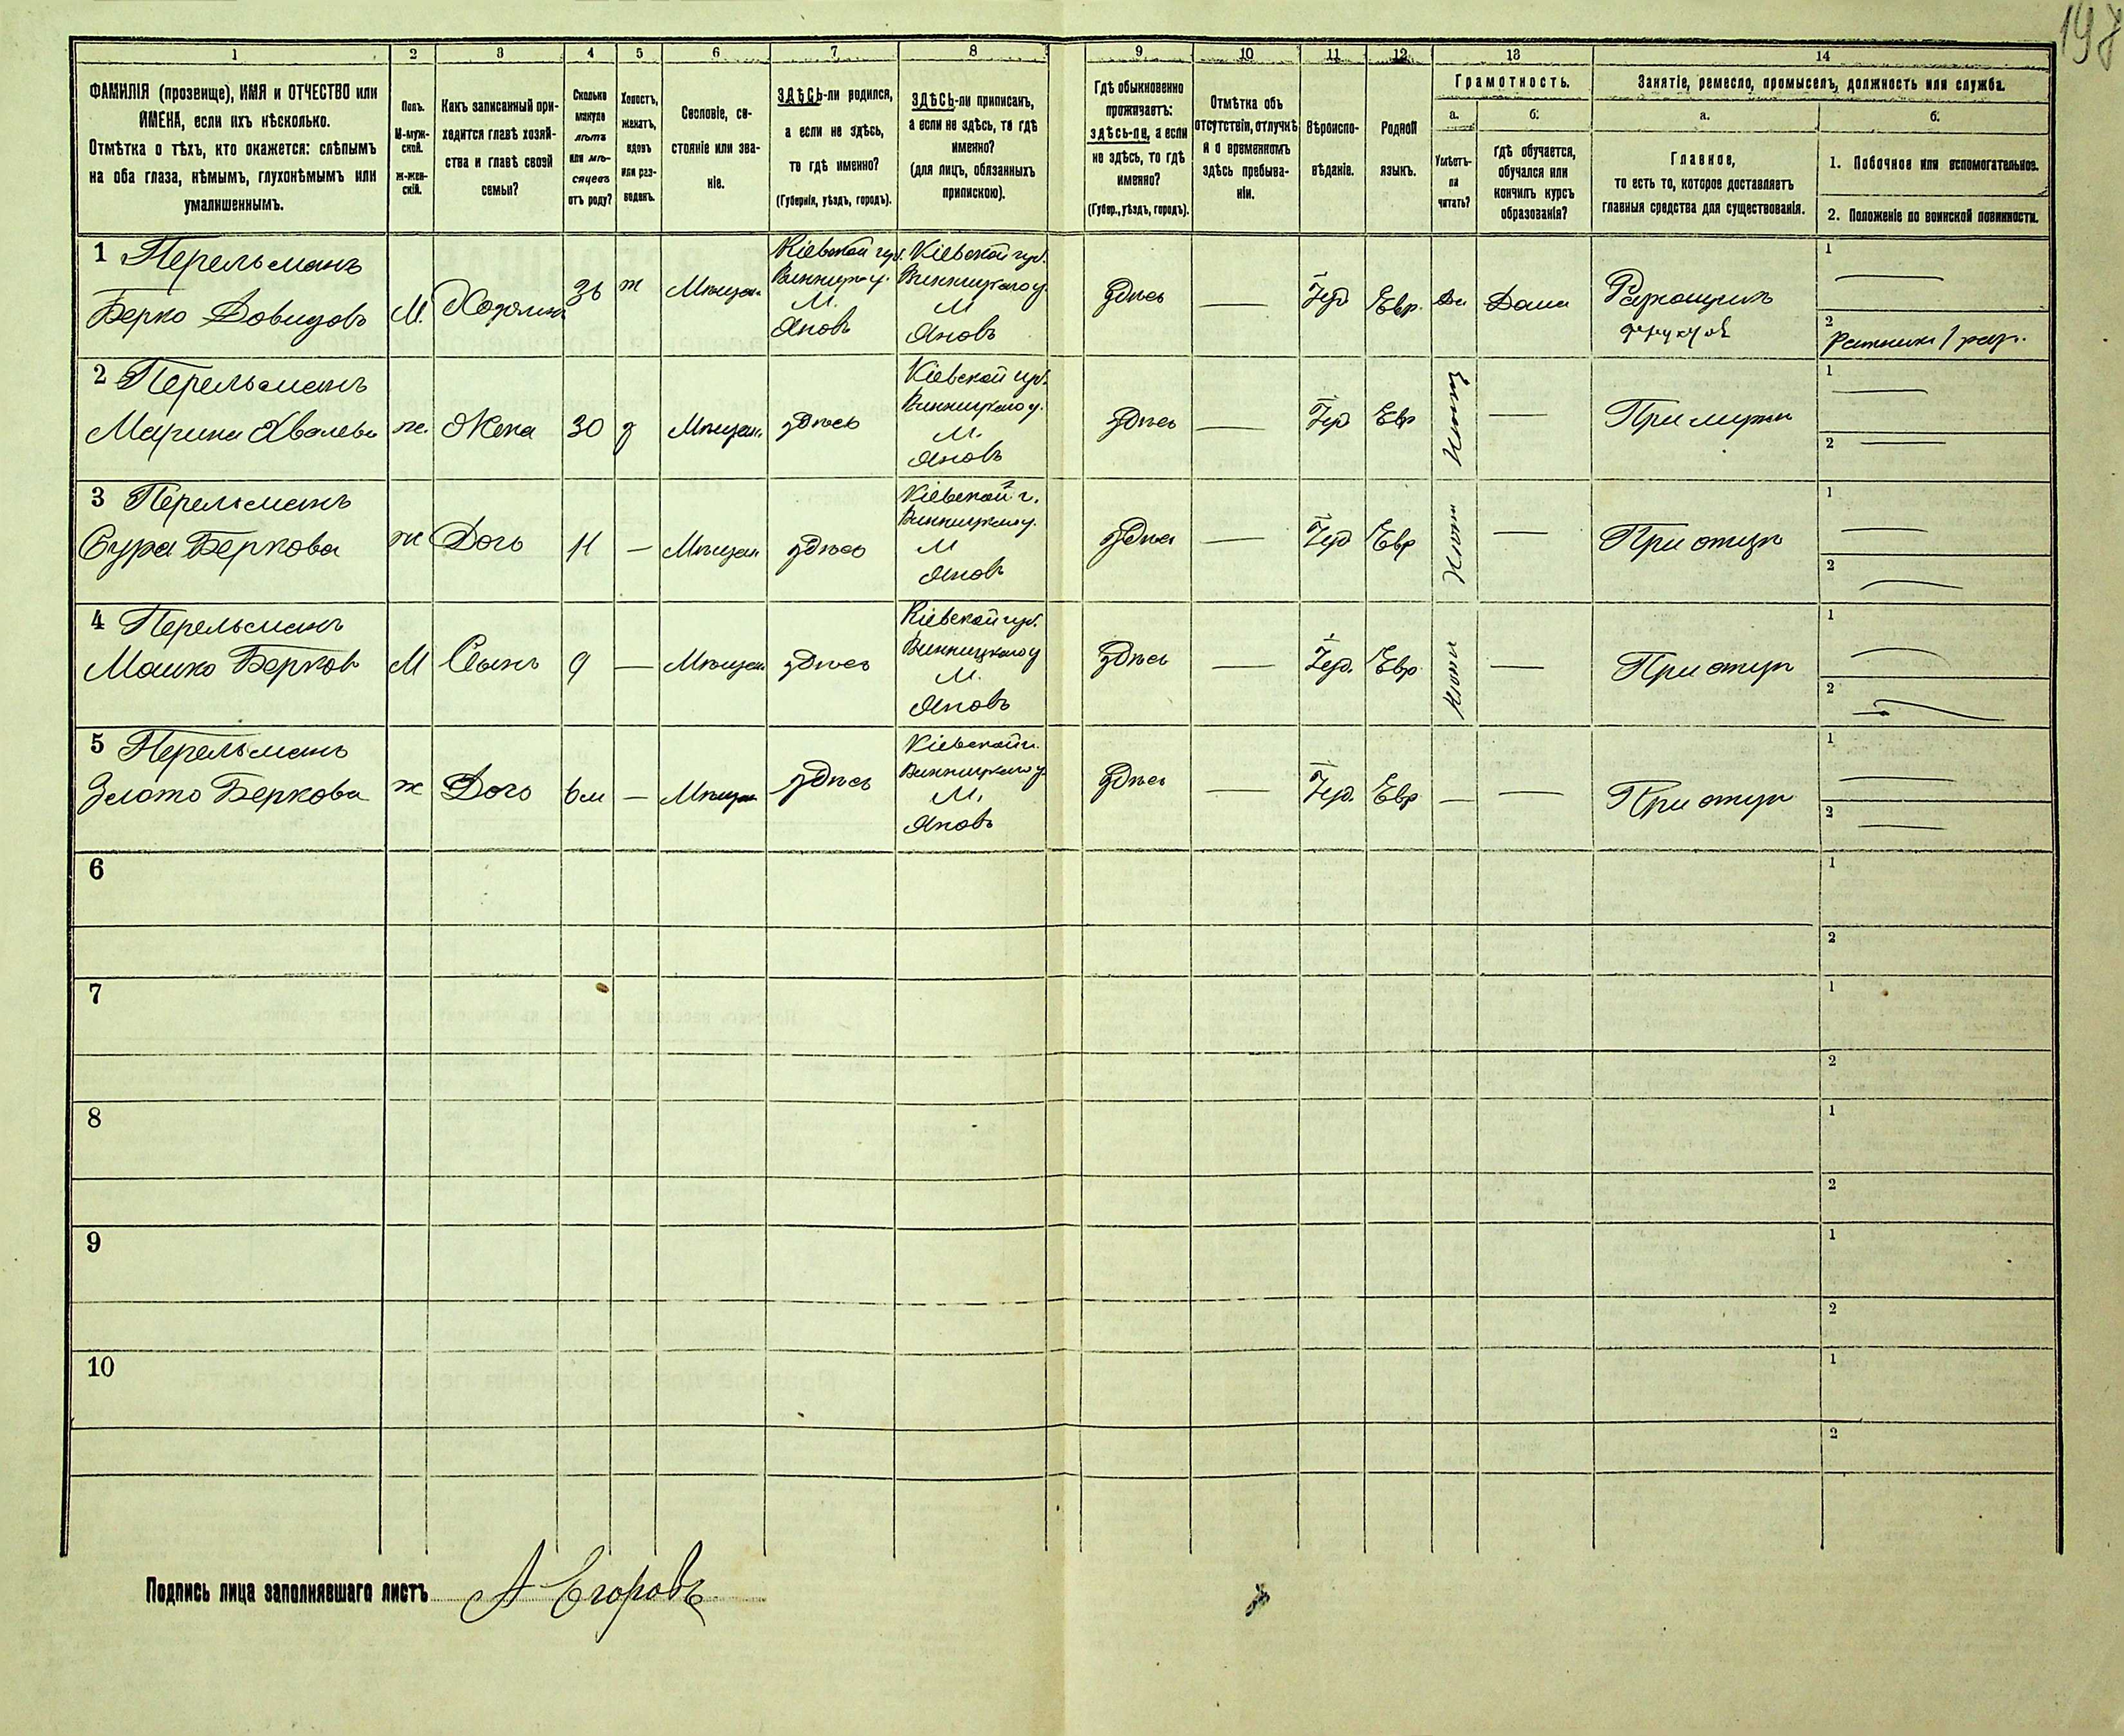 197
1 2 3 4 5 6 7 8 9 10 11 12 13 14
ФАМИЛІЯ (прозвище), ИМЯ и ОТЧЕСТВО или
ИМЕНА, если ихъ нѣсколько.
Отмѣтка о тѣхъ, кто окажется: слѣпымъ
на оба глаза, нѣмымъ, глухонѣмымъ или
умалишеннымъ.
Полъ.
М-муж-
ской.
Ж-жен-
скій.
Какъ записанный при-
ходится главѣ хозяй-
ства и главѣ своей
семьи?
Сколько
минуло
лѣтъ
или мѣ-
сяцевъ
отъ роду?
Холостъ,
женатъ,
вдовъ
или раз-
веденъ.
Сословіе, со-
стояніе или зва-
ніе.
ЗДѢСЬ-ли родился,
а если не здѣсь,
то гдѣ именно?
(Губернія, уѣздъ, городъ).
ЗДѢСЬ-ли приписанъ,
а если не здѣсь, то гдѣ
именно?
(для лицъ, обязанныхъ
припискою).
Гдѣ обыкновенно
проживаетъ:
здѣсь-ли, а если
не здѣсь, то гдѣ
именно?
(Губер., уѣздъ, городъ).
Отмѣтка объ
отсутствіи, отлучкѣ
и о временномъ
здѣсь пребыва-
ніи.
Вѣроиспо-
вѣданіе.
Родной
языкъ.
Грамотность.
а.
Умѣетъ-
ли
читать?
б.
Гдѣ обучается,
обучался или
кончилъ курсъ
образованія?
Занятіе, ремесло, промыселъ, должность или служба.
а.
Главное,
то есть то, которое доставляетъ
главныя средства для существованія.
б.
1. Побочное или вспомогательное.
2. Положеніе по воинской повинности.
1 Перельманъ
Берко Довидовъ
М. Хозяинъ 36 ж Мѣщан.
Кіевской губ.
Винницк. у.
М.
Яновъ
Кіевской губ.
Винницкаго у.
М
Яновъ
Здѣсь — Іуд Евр. Да Дома
1 —
2 Ратникъ 1 раз.
2 Перельманъ
ж. Жена 30 з Мѣщан. здѣсь
Кіевской губ.
Винницкаго у.
М.
Яновъ
Здѣсь — Іуд Евр —
При мужѣ
1 —
2 —
3 Перельманъ
Сура Беркова
ж Дочь 11 — Мѣщан здѣсь
Кіевской г.
Винницкаго у.
М
Яновъ
Здѣсь — Іуд Евр —
При отцѣ
1 —
2 —
4 Перельманъ
Мошко Берков
М Сынъ 9 — Мѣщан здѣсь
Кіевской губ.
Винницкаго у
М.
Яновъ
Здѣсь — Іуд. Евр —
При отцѣ
1 —
2 —
5 Перельманъ
Злота Беркова
ж Дочь 6м — Мѣщан здѣсь
Кіевской г.
Винницкаго у
М.
Яновъ
Здѣсь — Іуд. Евр — —
При отцѣ
1 —
2 —
6 1
2
7 1
2
8 1
2
9 1
2
10 1
2
Подпись лица заполнявшаго листъ А Егоровъ